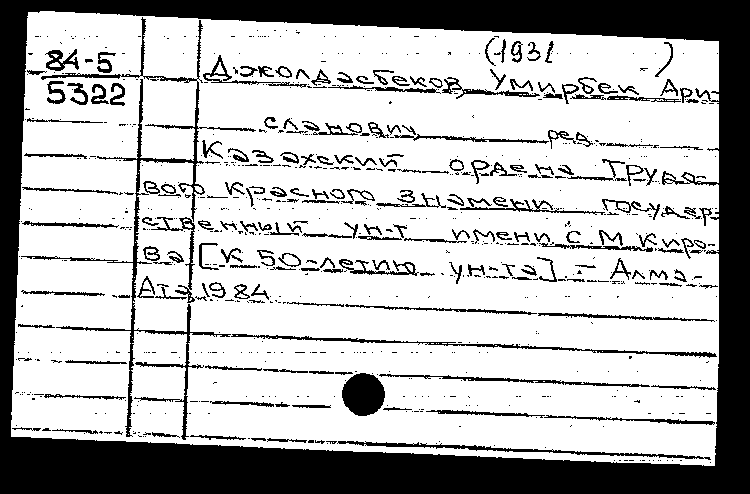 84-5
5322
(1931 )
Джолдасбеков, Умирбек Ари-
сланович ред.
Казахский ордена Трудо-
вого Красного Знамени государ-
ственный ун-т имени С. М. Киро-
ва [К 50-летию ун-та]. - Алма-
Ата, 1984